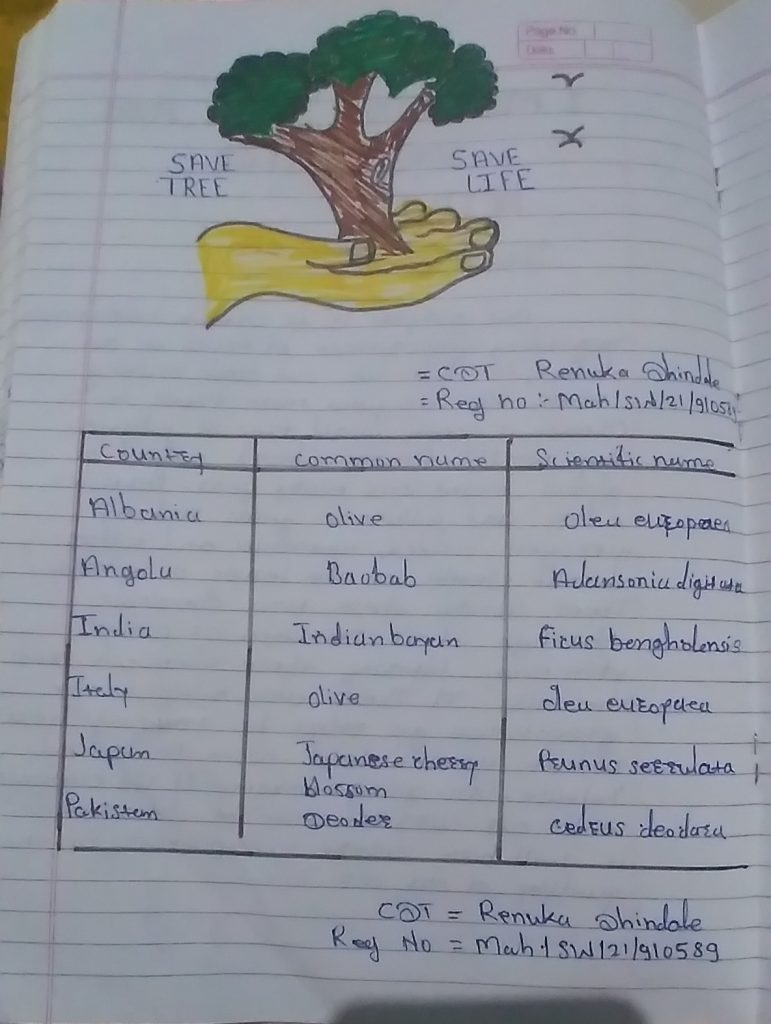 Page No.
Date
SAVE TREE
SAVE LIFE
= CDT Renuka Shindale
= Reg no :- Mah/SW/21/910589
Country common name Scientific name
Albania olive Olea europaea
Angola Baobab Adansonia digitata
India Indian banyan ficus bengholensis
Italy olive Olea europaea
Japan Japanese cherry blossom Prunus serrulata
Pakistan Deoder cedrus deodara
CDT = Renuka Shindale
Reg No = Mah/SW/21/910589